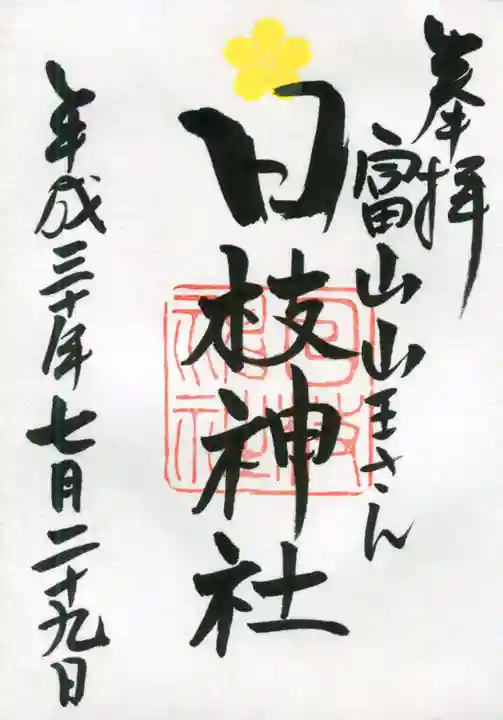 奉拝
富山山王さん
日枝神社
日枝神社
平成三十年七月二十九日